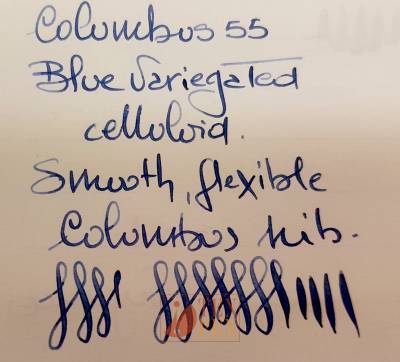 Columbus 55
Blue Variegated
celluloid.
Smooth, flexible
Columbus nib.